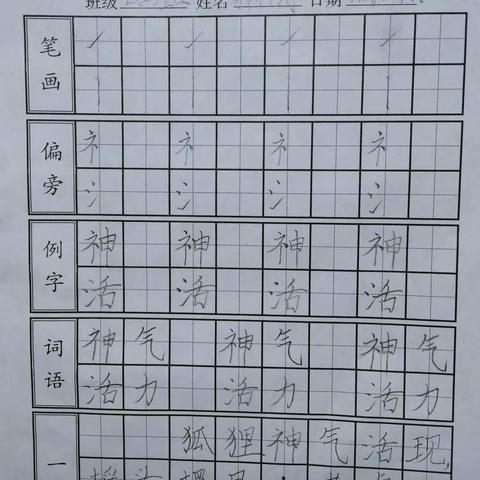 班级 姓名 日期
笔画
偏旁
礻 礻 礻 礻
氵 氵 氵 氵
例字
神 神 神 神
活 活 活 活
词语
神气 神气 神气
活力 活力 活力
一
狐狸神气活现,
摇头摆尾